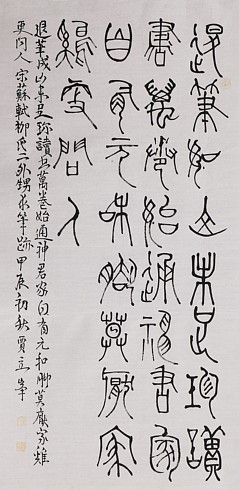 退筆如山未足珍讀
書萬卷始通神君家
自有元和腳莫厭家
雞更問人
退筆成山未足珍讀书萬卷始通神君家自有元和腳莫厭家雞
更问人 宋蘇軾柳氏二外甥求筆跡 甲辰初秋 賈立